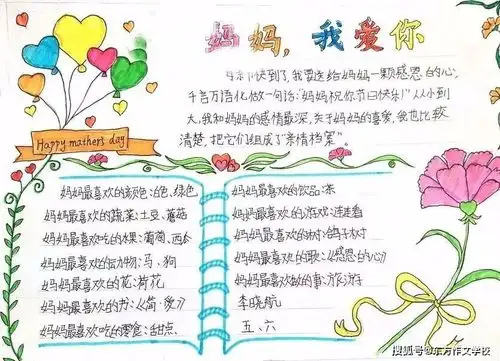 妈妈，我爱你
母亲节快到了，我要送给妈妈一颗感恩的心，
千言万语化做一句话："妈妈祝你节日快乐！"从小到
大，我和妈妈的感情最深，关于妈妈的喜爱，我也比较
清楚，把它们组成了"亲情档案"。
Happy mathers day
妈妈最喜欢的颜色：白色、绿色
妈妈最喜欢的蔬菜：土豆、蘑菇
妈妈最喜欢吃的水果：葡萄、西瓜
妈妈最喜欢的动物：马、狗
妈妈最喜欢的花：荷花
妈妈最喜欢的书：《简·爱》
妈妈最喜欢吃的零食：甜点
妈妈最喜欢的饮品：茶
妈妈最喜欢的游戏：连连看
妈妈最喜欢的树：鸽子树
妈妈最喜欢的歌：《感恩的心》
妈妈最喜欢做的事：旅游
李晓航
五、六
搜狐号@东方作文学校